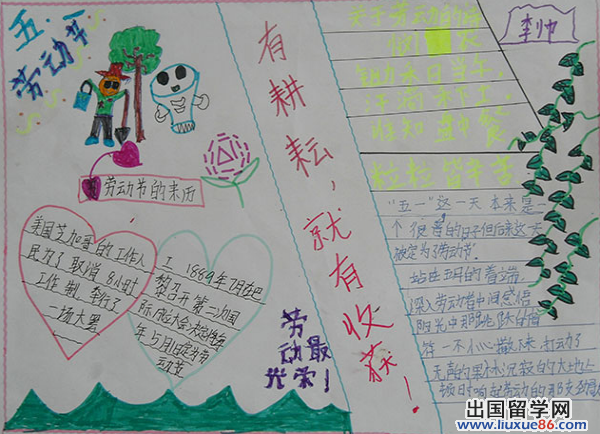 五一
劳动节
劳动节的来历
美国芝加哥的工作人
民为了取消 8小时
工作制,举行了
一场大罢
工 1889年7月在巴
黎召开第二次国
年5月1日定为劳
动节
劳动最
光荣!
有耕耘,就有收获!
李帅
关于劳动的诗
锄禾日当午,
汗滴禾下土。
谁知盘中餐
粒粒皆辛苦
"五一"这一天 本来是一
个很普的日子但后来这一天
被定为劳动节.
站在五月的着端,
深入劳动者中间感悟
阳光中那跳跃的指
符 一不小心撒下来 打动了
无声的果沐沉寂的大地上
出国留学网
www.liuxue86.com